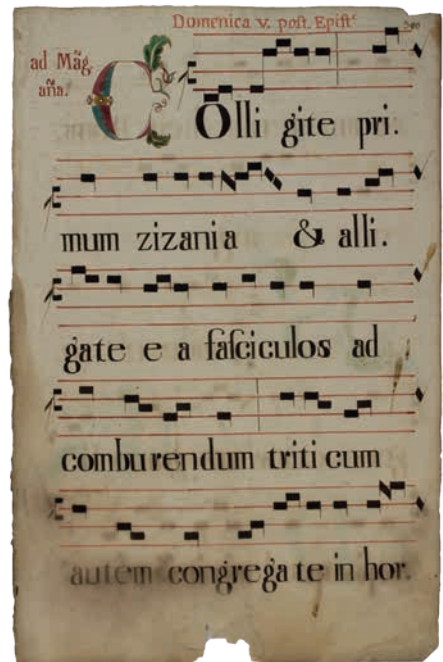 Domenica v. post. Epistᵉ
ad Mãg.
aña.
COlli gite pri.
mum zizania & alli.
gate e a fasciculos ad
combu rendum triti cum
autem congrega te in hor.